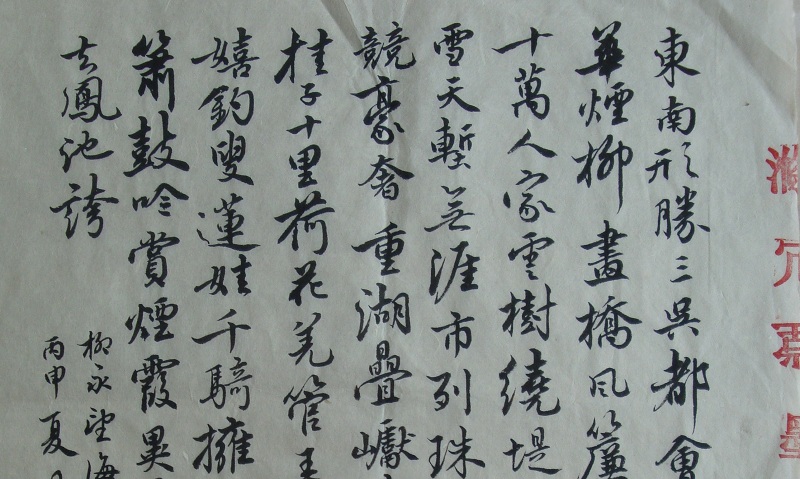 東南形勝三吳都會
華煙柳畫橋風簾
十萬人家雲樹繞堤
雪天塹無涯市列珠
競豪奢重湖疊巘
桂子十里荷花羌管
嬉釣叟蓮娃千騎擁
簫鼓吟賞煙霞異
去鳳池誇
柳永望海
丙申夏